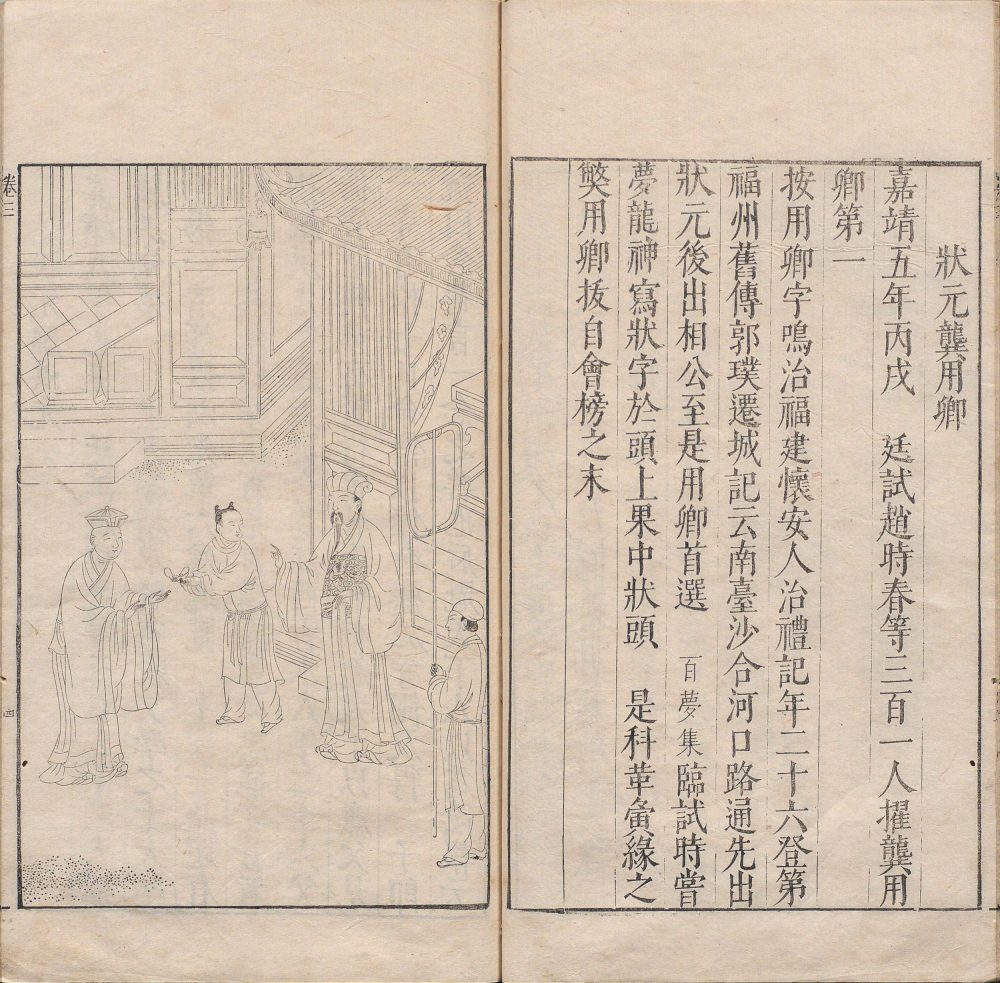 狀元龔用卿
嘉靖五年丙戌　廷試趙時春等三百一人擢龔用
卿第一
按用卿字鳴治福建懷安人治禮記年二十六登第
福州舊傳郭璞遷城記云南臺沙合河口路通先出
狀元後出相公至是用卿首選　百夢集臨試時嘗
夢龍神寫狀字於頭上果中狀頭　是科革夤緣之
獘用卿拔自會榜之末
卷三
四